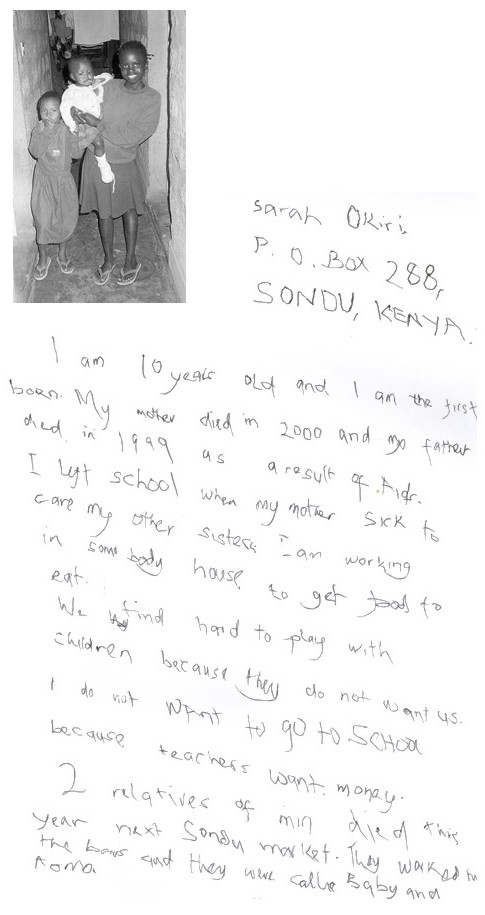 sarah Okiri,
P. O. Box 288,
SONDU, KENYA.
I am 10 years old and I am the first
born. My mother died in 2000 and my father
died in 1999 as a result of Aids.
I left school when my mother sick to
care my other sisters I am working
in some body house to get food to
eat.
We find hard to play with
children because they do not want us.
I do not want to go to SCHool
because teachers want money.
2 relatives of min died this
year next Sondu market. They worked in
the bars and they were calle Baby and
Aoma